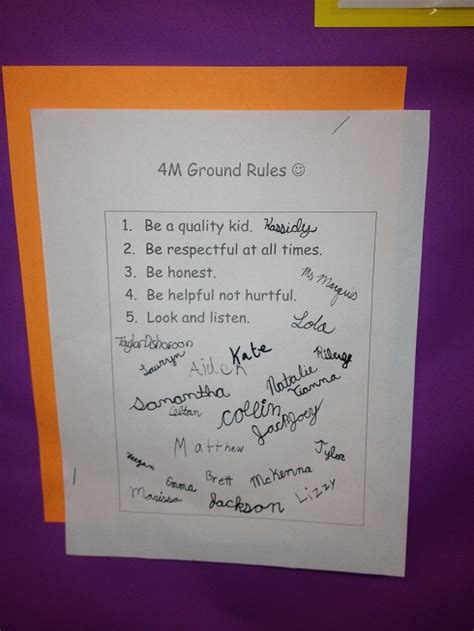 4M Ground Rules ☺
1. Be a quality kid. Kassidy
2. Be respectful at all times.
3. Be honest.
Ms Marquis
4. Be helpful not hurtful.
5. Look and listen.
Lola
Taylor
Lauryn
Aiden
Kate
Natalie
Tianna
Samantha
Colton
Collin
Jack
Joey
Matthew
Tyler
Keegan
Emma
Brett
McKenna
Marissa
Jackson
Lizzy